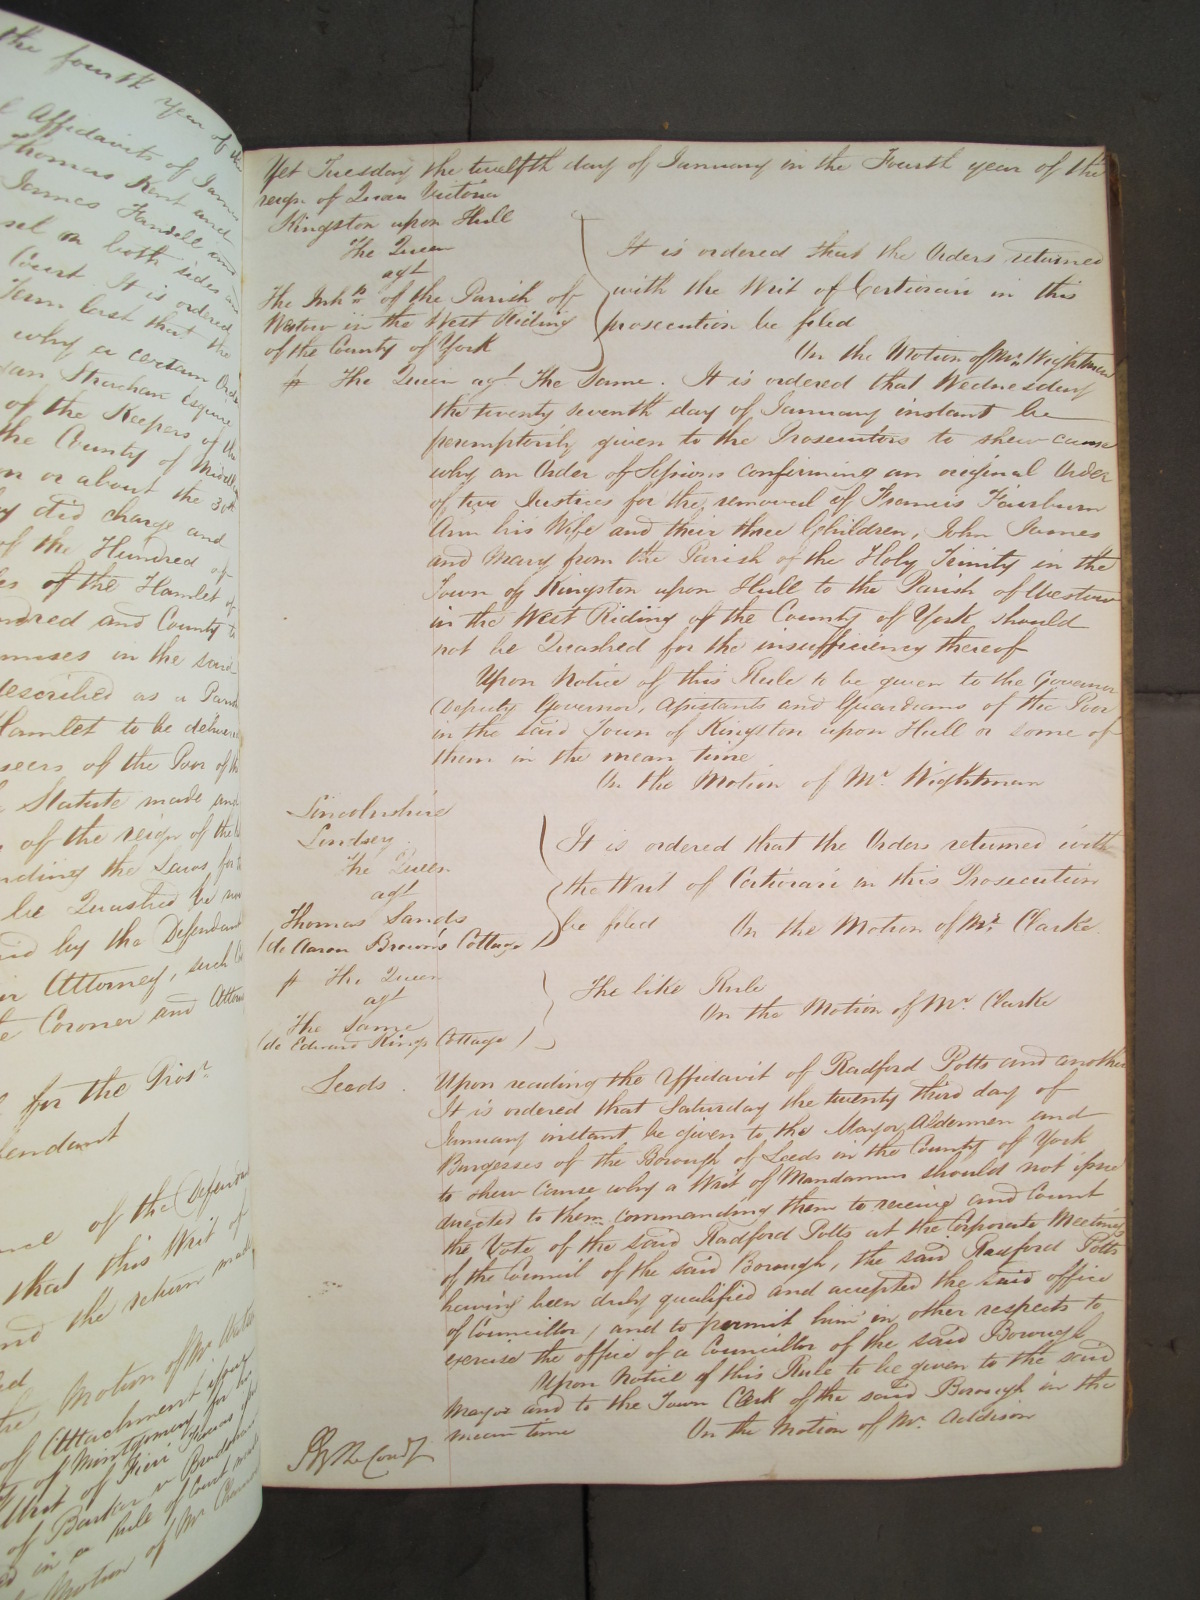 the fourth year of the
Affidavits of James
Thomas Kent and
James Fardell and
sel on both sides and
Court It is ordered
Term last that the
why a certain Order
Strachan Esquire
of the Keepers of the
the County of Middle
on or about the 30th
did charge and
of the Hundred of
of the Hamlet of
ndred and County
mises in the said
described as a
Hamlet to be deliver
seers of the Poor of the
Statute made and
of the reign of the
nding the Laws for
be Quashed be
by the Defendant
Attorney, such
Coroner and Attor
for the Prosr
endant
of the Defenda
that this Writ of
nd the return
Motion of Mr
of Attachment
of Montgomery for
Writ of Fieri
of Barker v
in a Rule of Court
Motion of Mr
Yet Tuesday the twelfth day of January in the Fourth year of the
reign of Queen Victoria
Kingston upon Hull
The Queen
agt
The Inhts of the Parish of
Westow in the West Riding
of the County of York
It is ordered that the Orders returned
with the Writ of Certiorari in this
prosecution be filed
On the Motion of Mr. Wightman
The Queen agt The Same. It is ordered that Wednesday
the twenty seventh day of January instant be
peremptorily given to the Prosecutors to shew cause
why an Order of Sessions confirming an original Order
of two Justices for the removal of Francis Fairburn
Ann his Wife and their three Children, John James
and Mary from the Parish of the Holy Trinity in the
Town of Kingston upon Hull to the Parish of Westow
in the West Riding of the County of York should
not be Quashed for the insufficiency thereof
Upon Notice of this Rule to be given to the Governor
Deputy Governor, Assistants and Guardians of the Poor
in the said Town of Kingston upon Hull or some of
them in the mean time
On the Motion of Mr. Wightman
Lincolnshire
Lindsey
The Queen
agt
Thomas Sands
(de Aaron Brown's Cottage)
It is ordered that the Orders returned with
the Writ of Certiorari in this Prosecution
be filed On the Motion of Mr. Clarke
The Queen
agt
The Same
(de Edward Kings Cottage)
The like Rule
On the Motion of Mr. Clarke
Leeds.
Upon reading the Affidavit of Radford Potts and another
It is ordered that Saturday the twenty third day of
January instant be given to the Mayor Aldermen and
Burgesses of the Borough of Leeds in the County of York
to shew Cause why a Writ of Mandamus should not issue
directed to them commanding them to receive and Count
the Vote of the said Radford Potts at the Corporate Meetings
of the Council of the said Borough, the said Radford Potts
having been duly qualified and accepted the said office
of Councillor, and to permit him in other respects to
exercise the office of a Councillor of the said Borough
Upon Notice of this Rule to be given to the said
Mayor and to the Town Clerk of the said Borough in the
mean time On the Motion of Mr. Addison
By the Court